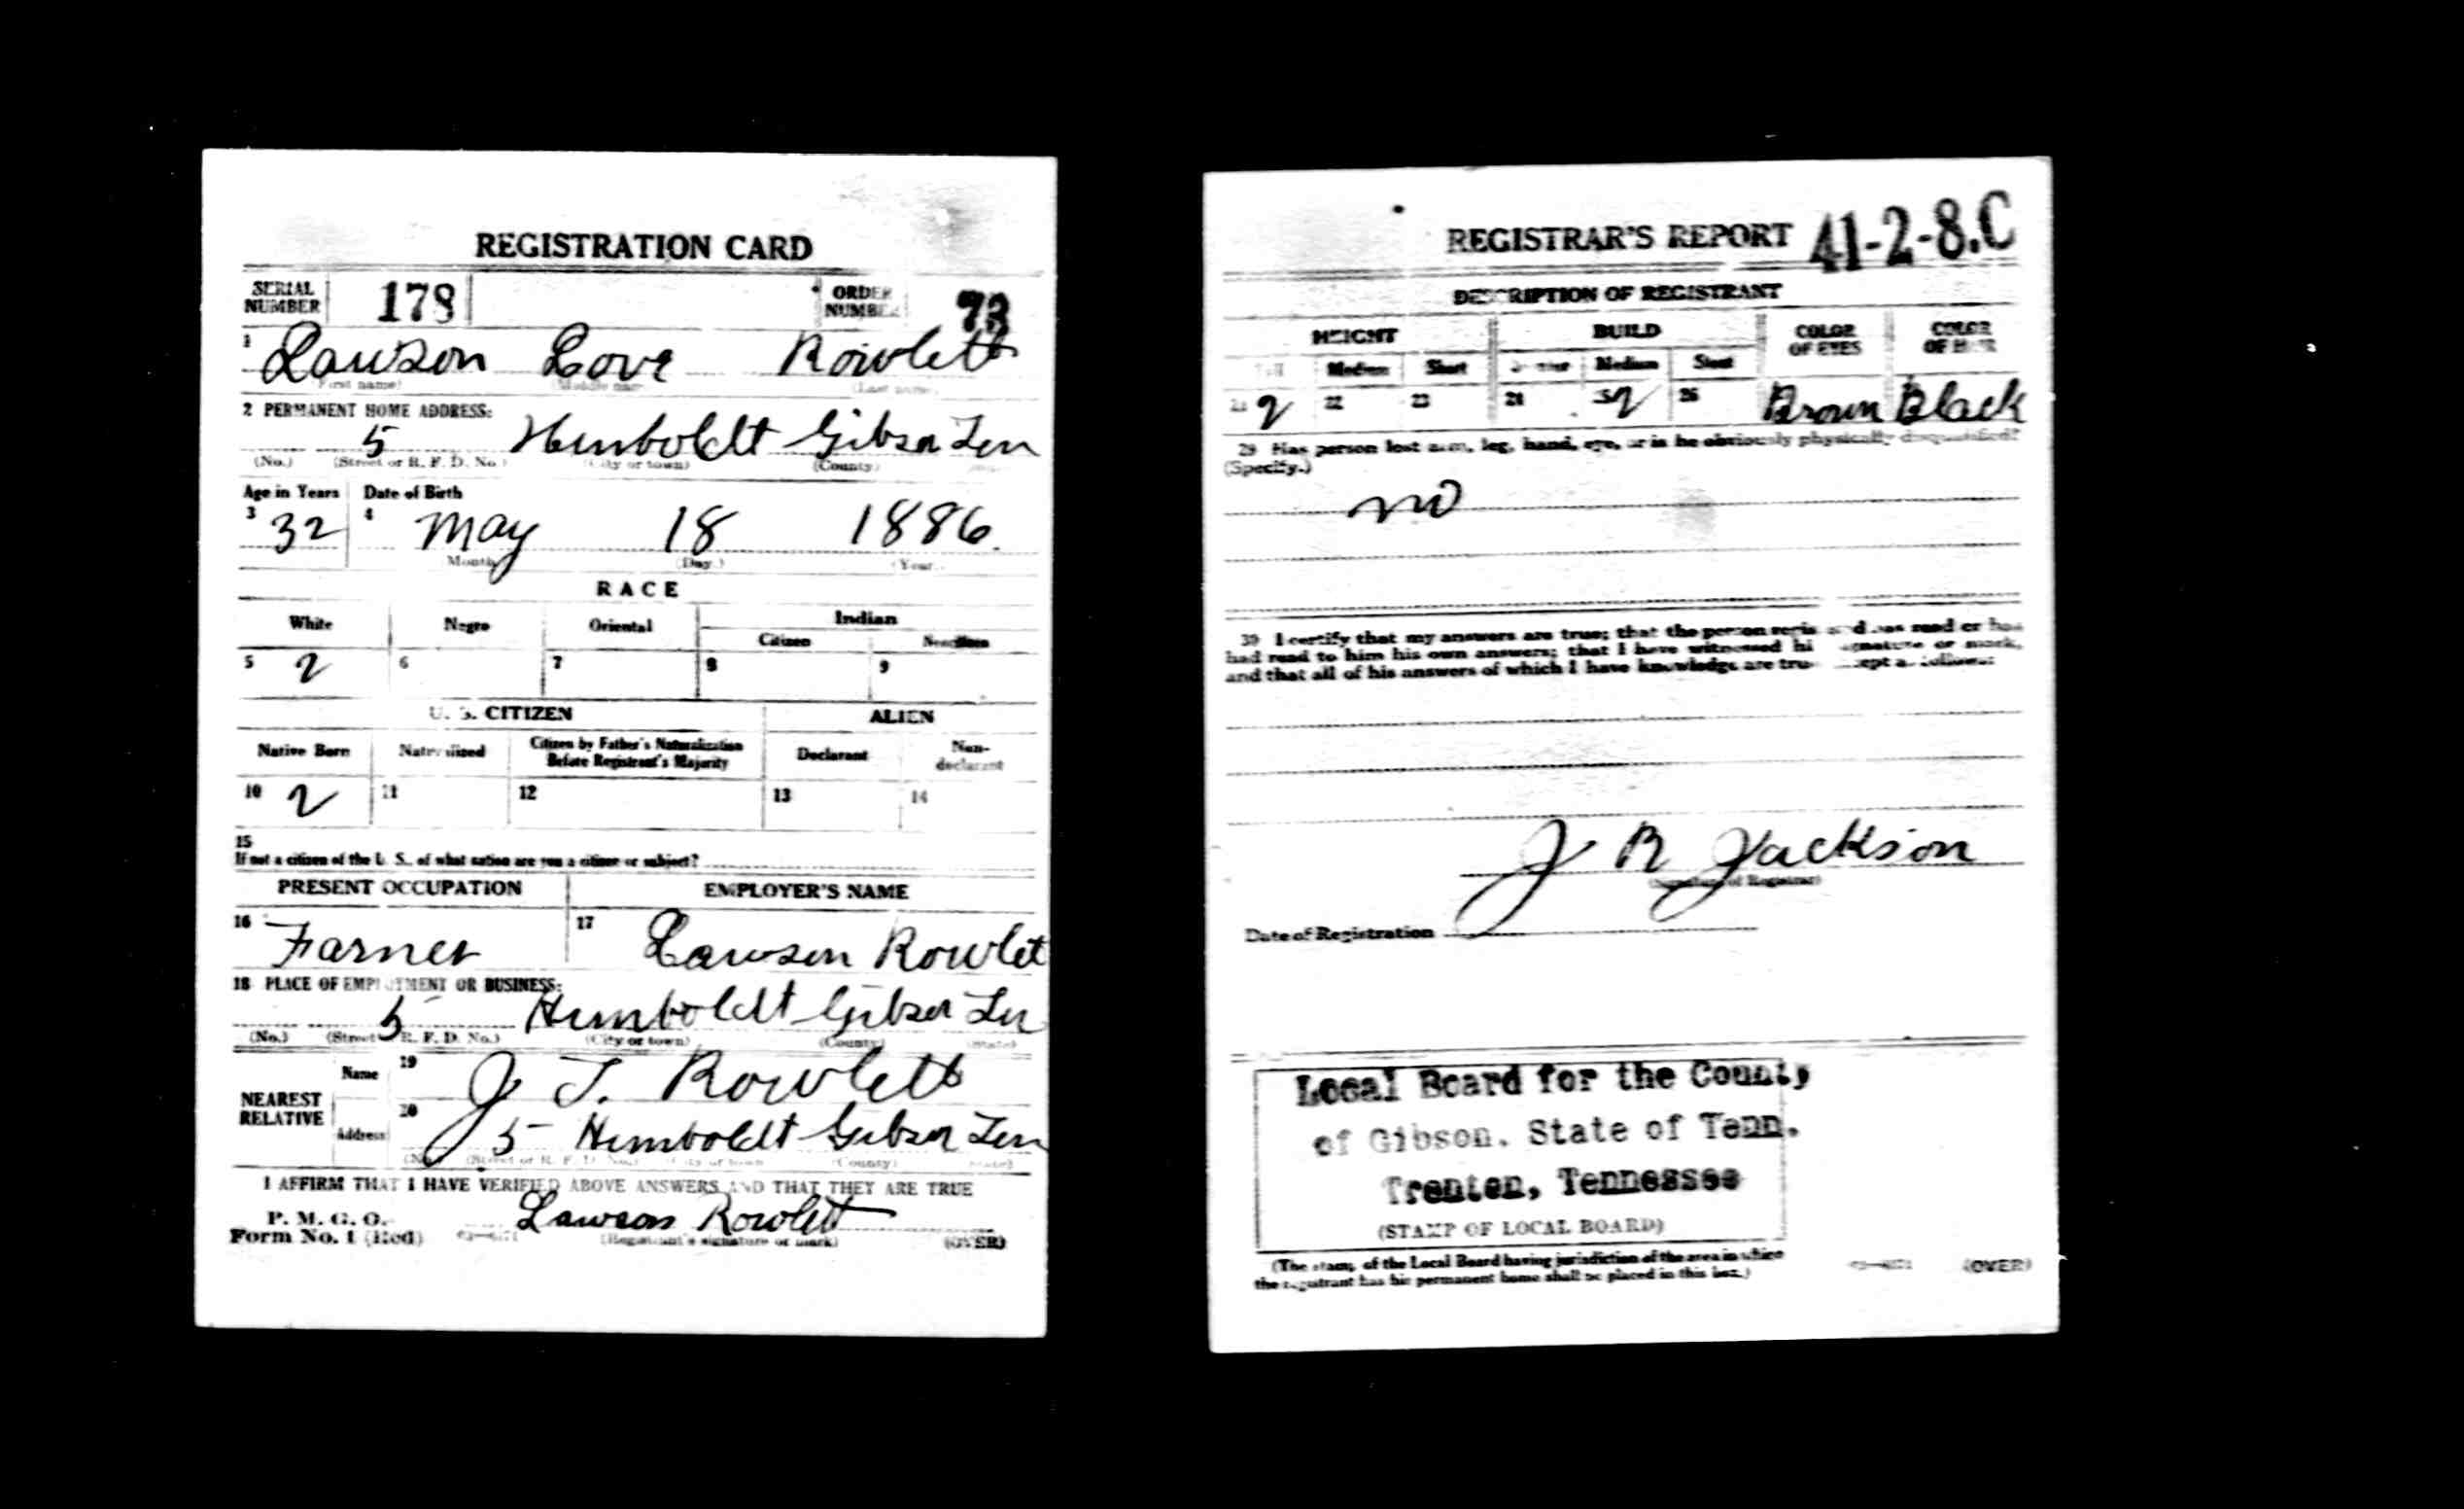 REGISTRATION CARD
SERIAL NUMBER 178 ORDER NUMBER 73
1 Lawson Love Rowlett
(First name) (Middle name) (Last name)
2 PERMANENT HOME ADDRESS:
5 Humboldt Gibson Ten
(No.) (Street or R. F. D. No.) (City or town) (County)
Age in Years Date of Birth
3 32 4 May 18 1886.
Month (Day.) (Year.
RACE
White Negro Oriental Indian
Citizen Noncitizen
5 2 6 7 8 9
U. S. CITIZEN ALIEN
Native Born Naturalized Citizen by Father's Naturalization Before Registrant's Majority Declarant Non-declarant
10 2 11 12 13 14
15
If not a citizen of the U. S., of what nation are you a citizen or subject?
PRESENT OCCUPATION EMPLOYER'S NAME
16 Farner 17 Lawson Rowlet
18 PLACE OF EMPLOYMENT OR BUSINESS:
5 Humboldt Gibson Ten
(No.) (Street R. F. D. No.) (City or town) (County) (State)
NEAREST RELATIVE
Name 19 J T. Rowlett
Address 20 5- Humboldt Gibson Ten
(No. (Street or R. F. D. No.) (City or town (County) (State)
I AFFIRM THAT I HAVE VERIFIED ABOVE ANSWERS AND THAT THEY ARE TRUE
P. M. G. O.
Form No. 1 (Red) Lawson Rowlett
(Registrant's signature or mark) (OVER)
REGISTRAR'S REPORT 41-2-8.C
DESCRIPTION OF REGISTRANT
HEIGHT BUILD COLOR OF EYES COLOR OF HAIR
Tall Medium Short Slender Medium Stout
21 2 22 23 24 2 26 Brown Black
29 Has person lost arm, leg, hand, eye, or is he obviously physically disqualified?
(Specify.)
no
30 I certify that my answers are true; that the person registered has read or has
had read to him his own answers; that I have witnessed his signature or mark,
and that all of his answers of which I have knowledge are true, except as follows:
J R Jackson
(Signature of Registrar)
Date of Registration
Local Board for the County
of Gibson. State of Tenn.
Trenton, Tennessee
(STAMP OF LOCAL BOARD)
(The stamp of the Local Board having jurisdiction of the area in which
the registrant has his permanent home shall be placed in this box.)
(OVER)